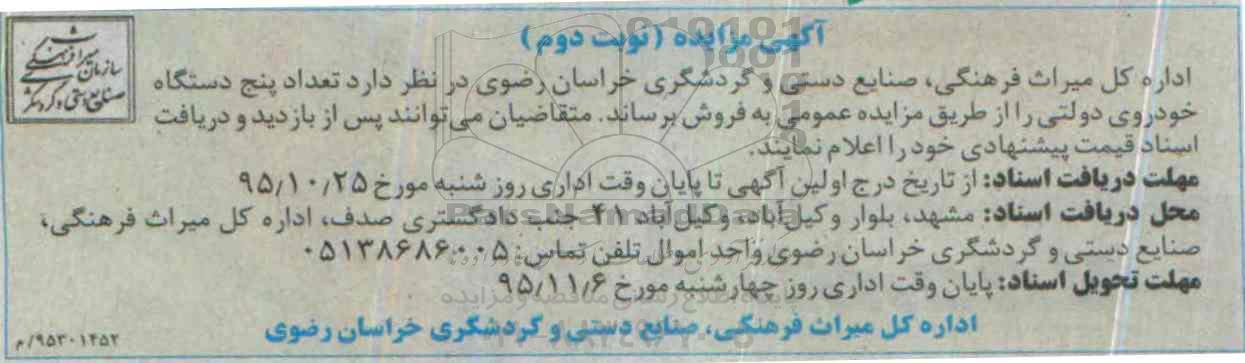 آگهی مزایده (نوبت دوم)
سازمان میراث فرهنگی
صنایع دستی و گردشگری
اداره کل میراث فرهنگی، صنایع دستی و گردشگری خراسان رضوی در نظر دارد تعداد پنج دستگاه
خودروی دولتی را از طریق مزایده عمومی به فروش برساند. متقاضیان می‌توانند پس از بازدید و دریافت
اسناد قیمت پیشنهادی خود را اعلام نمایند.
مهلت دریافت اسناد: از تاریخ درج اولین آگهی تا پایان وقت اداری روز شنبه مورخ ۹۵/۱۰/۲۵
محل دریافت اسناد: مشهد، بلوار وکیل‌آباد، وکیل‌آباد ۴۱ جنب دادگستری صدف، اداره کل میراث فرهنگی،
صنایع دستی و گردشگری خراسان رضوی واحد اموال تلفن تماس: ۰۵۱۳۸۶۸۶۰۰۵
مهلت تحویل اسناد: پایان وقت اداری روز چهارشنبه مورخ ۹۵/۱۱/۶
اداره کل میراث فرهنگی، صنایع دستی و گردشگری خراسان رضوی
۹۵۳۰۱۴۵۲/م